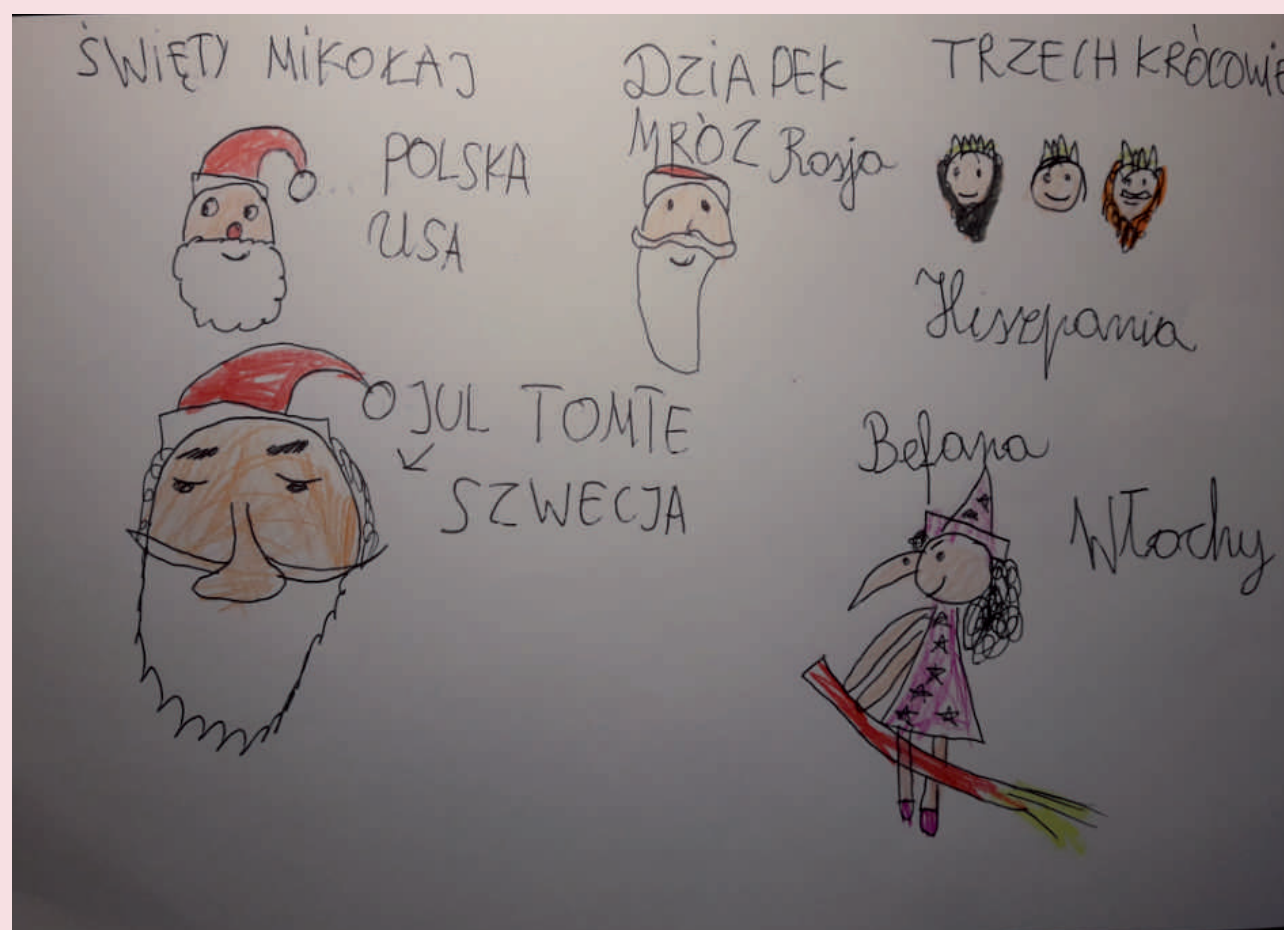 ŚWIĘTY MIKOŁAJ
POLSKA
USA
DZIADEK
MRÓZ Rosja
TRZECH KRÓLOWIE
Hiszpania
JUL TOMTE
SZWECJA
Befana
Włochy